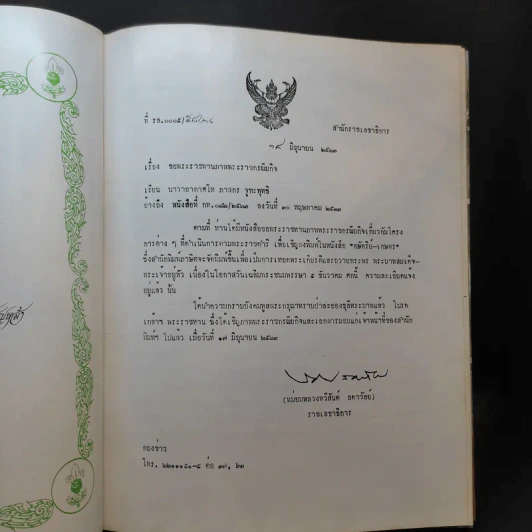 ที่ รล.๐๐๐๕/
สำนักราชเลขาธิการ
มิถุนายน ๒๕๒๓
เรื่อง ขอพระราชทานภาพพระราชกรณียกิจ
เรียน นาวาอากาศโท ภาสกร จูฑะพุทธิ
อ้างถึง หนังสือที่ กท. ลงวันที่ ๓๐ พฤษภาคม ๒๕๒๓
ตามที่ ท่านได้มีหนังสือขอพระราชทานภาพพระราชกรณียกิจเกี่ยวกับโครง
การต่าง ๆ ที่ดำเนินการตามพระราชดำริ เพื่อเชิญลงพิมพ์ในหนังสือ "กษัตริย์-เกษตร"
ซึ่งสำนักพิมพ์ภาษิตจะจัดพิมพ์ขึ้นเพื่อเป็นการเทอดพระเกียรติและถวายพระพร พระบาทสมเด็จ-
พระเจ้าอยู่หัว เนื่องในโอกาสวันเฉลิมพระชนมพรรษา ๕ ธันวาคม ศกนี้ ความละเอียดแจ้ง
อยู่แล้ว นั้น
ได้นำความกราบบังคมทูลพระกรุณาทราบฝ่าละอองธุลีพระบาทแล้ว โปรด
เกล้าฯ พระราชทาน ซึ่งได้เชิญภาพพระราชกรณียกิจและเอกสารมอบแก่เจ้าหน้าที่ของสำนัก
พิมพ์ฯ ไปแล้ว เมื่อวันที่ ๑๗ มิถุนายน ๒๕๒๓
(หม่อมหลวงทวีสันต์ ลดาวัลย์)
ราชเลขาธิการ
กองข่าว
โทร. ๒๒๑๑๑๕๑-๕ ต่อ ๓๗, ๒๓